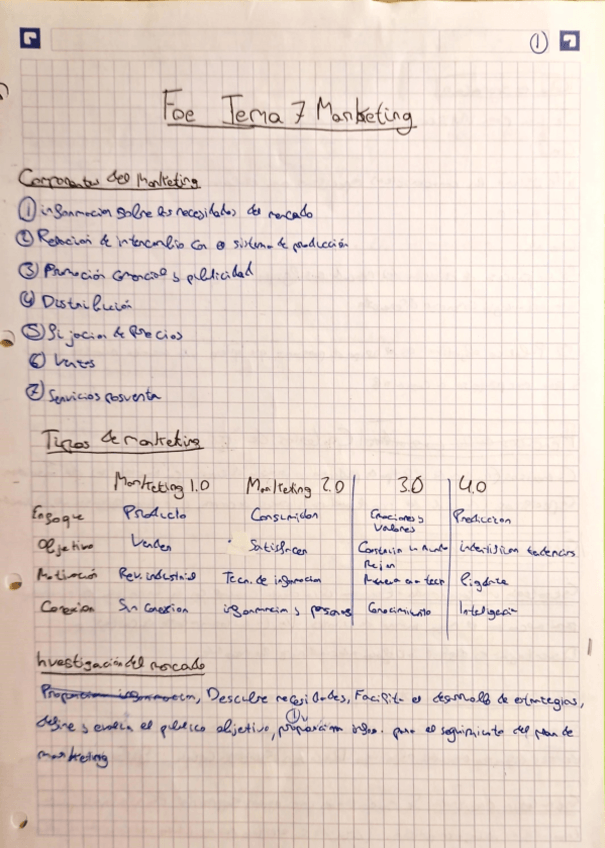 1
Foe Tema 7 Marketing
Componentes del Marketing
1 información sobre las necesidades del mercado
2 Relación de intercambio con el sistema de producción
3 Promoción comercial y publicidad
4 Distribución
5 Fijacion de Precios
6 Ventas
7 Servicios posventa
Tipos de marketing
Marketing 1.0 Marketing 2.0 3.0 4.0
Enfoque Producto Consumidor Emociones y Valores Prediccion
Objetivo Vender Satisfacer Construir un mundo Mejor indentifican tendencias
Motivación Rev. industrial Tecn. de informacion Nueva tecn
Conexion Sin Conexion informacion y personas Conocimiento Inteligencia
Investigación del mercado
Proporcion informacion, Descubre necesidades, Facilita el desarrollo de estrategias,
define y evalua el público objetivo, proporciona infor. para el seguimiento del plan de
marketing